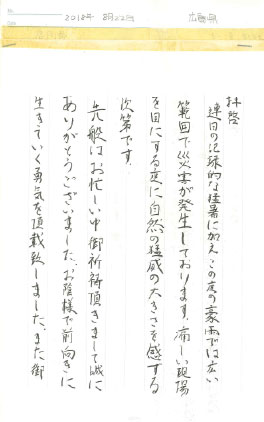 2018年 8月22日 広島県
拝啓
連日の記録的な猛暑に加え、この度の豪雨では広い
範囲で災害が発生しております。痛しい現場
を目にする度に自然の猛威の大きさを感ずる
次第です。
先般はお忙しい中御祈祷頂きまして誠に
ありがとうございました。お陰様で前向きに
生きていく勇気を頂戴致しました。また御